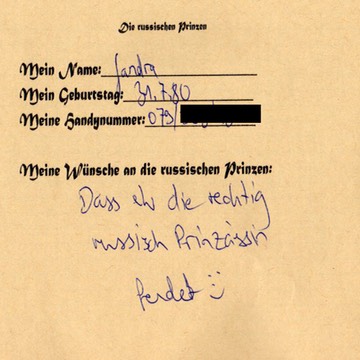 Die russischen Prinzen
Mein Name: Sandra
Mein Geburtstag: 31.7.80
Meine Handynummer: 079/
Meine Wünsche an die russischen Prinzen:
Dass ehr die rechtig
russisch Prinzässin
fendet :)